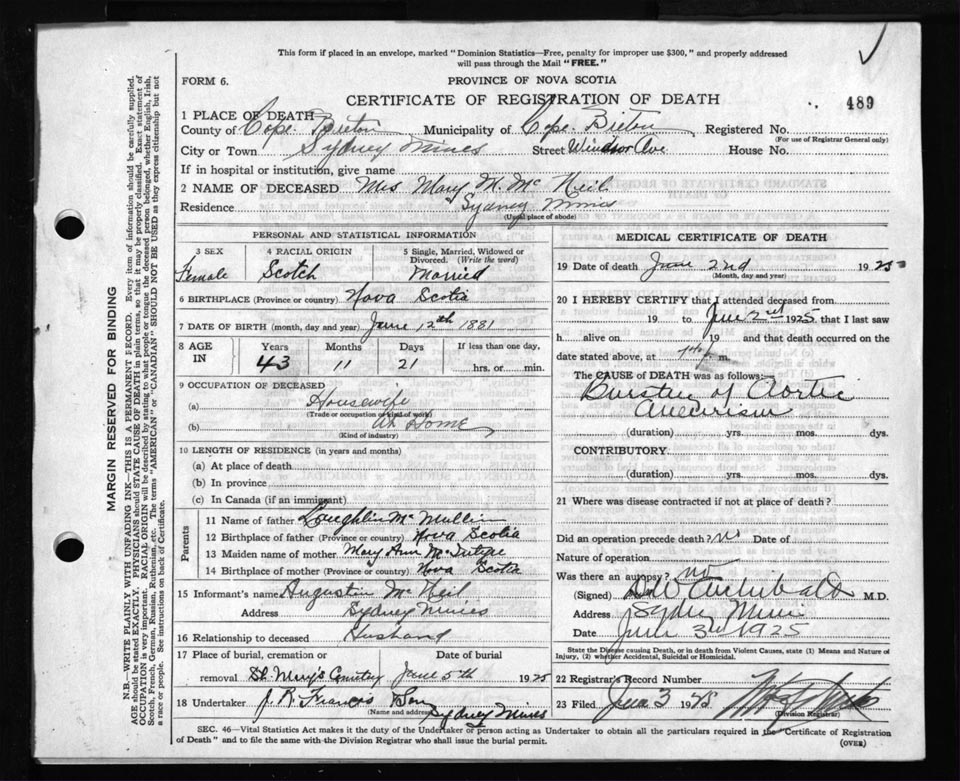 This form if placed in an envelope, marked "Dominion Statistics—Free, penalty for improper use $300," and properly addressed
will pass through the Mail "FREE."
FORM 6.
PROVINCE OF NOVA SCOTIA
CERTIFICATE OF REGISTRATION OF DEATH
489
1 PLACE OF DEATH
County of Cape Breton Municipality of Cape Breton Registered No.
(For use of Registrar General only)
City or Town Sydney Mines Street Windsor Ave House No.
If in hospital or institution, give name
2 NAME OF DECEASED Mrs Mary M. Mc Neil
Residence Sydney Mines
(Usual place of abode)
PERSONAL AND STATISTICAL INFORMATION
3 SEX
Female
4 RACIAL ORIGIN
Scotch
5 Single, Married, Widowed or
Divorced. (Write the word)
Married
6 BIRTHPLACE (Province or country) Nova Scotia
7 DATE OF BIRTH (month, day and year) June 12th 1881
8 AGE
IN
Years
43
Months
11
Days
21
If less than one day,
hrs. or min.
9 OCCUPATION OF DECEASED
(a) Housewife
(Trade or occupation or kind of work)
(b) At Home
(Kind of industry)
10 LENGTH OF RESIDENCE (in years and months)
(a) At place of death
(b) In province
(c) In Canada (if an immigrant)
Parents
11 Name of father Laughlin Mc Mullin
12 Birthplace of father (Province or country) Nova Scotia
13 Maiden name of mother Mary Ann McIntyre
14 Birthplace of mother (Province or country) Nova Scotia
15 Informant's name Augustin Mc Neil
Address Sydney Mines
16 Relationship to deceased Husband
17 Place of burial, cremation or Date of burial
removal St Mary's Cemetery June 5th 1925
18 Undertaker J. R. Francis Son
(Name and address) Sydney Mines
MEDICAL CERTIFICATE OF DEATH
19 Date of death June 2nd 1925
(Month, day and year)
20 I HEREBY CERTIFY that I attended deceased from
19 to June 2nd 1925, that I last saw
h alive on 19 and that death occurred on the
date stated above, at m.
The CAUSE of DEATH was as follows:
Bursting of Aortic
Aneurism
(duration) yrs. mos. dys.
CONTRIBUTORY.
(duration) yrs. mos. dys.
21 Where was disease contracted if not at place of death?
Did an operation precede death? no Date of
Nature of operation
Was there an autopsy? no
(Signed) Archibald M.D.
Address Sydney Mines
Date June 3rd 1925
State the Disease causing Death, or in death from Violent Causes, state (1) Means and Nature of
Injury, (2) whether Accidental, Suicidal or Homicidal.
22 Registrar's Record Number
23 Filed June 3 1925
(Division Registrar)
SEC. 46—Vital Statistics Act makes it the duty of the Undertaker or person acting as Undertaker to obtain all the particulars required in the "Certificate of Registration
of Death" and to file the same with the Division Registrar who shall issue the burial permit.
(OVER)
MARGIN RESERVED FOR BINDING
N.B.—WRITE PLAINLY WITH UNFADING INK—THIS IS A PERMANENT RECORD. Every item of information should be carefully supplied.
AGE should be stated EXACTLY. PHYSICIANS should STATE CAUSE OF DEATH in plain terms, so that it may be properly classified. Exact statement of
OCCUPATION is very important. RACIAL ORIGIN will be described by stating to what people or tongue the deceased person belonged, whether English, Irish,
Scotch, French, German, Russian, Ruthenian, etc. The terms "AMERICAN" or "CANADIAN" SHOULD NOT BE USED as they express citizenship but not
a race or people. See instructions on back of Certificate.